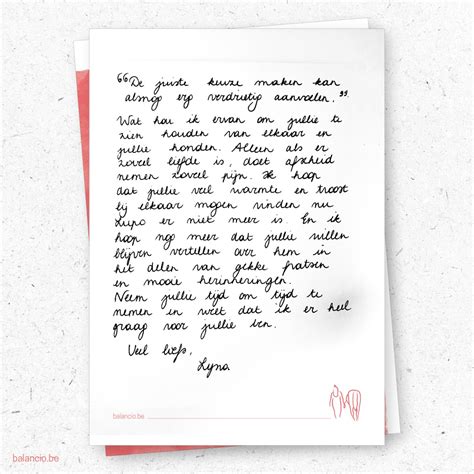 “De juiste keuze maken kan
alsnog erg verdrietig aanvoelen.”
Wat hou ik ervan om jullie te
zien houden van elkaar en
jullie honden. Alleen als er
zoveel liefde is, doet afscheid
nemen zoveel pijn. Ik hoop
dat jullie veel warmte en troost
bij elkaar mogen vinden nu
Lupo er niet meer is. En ik
hoop nog meer dat jullie willen
blijven vertellen over hem in
het delen van gekke fratsen
en mooie herinneringen.
Neem jullie tijd om tijd te
nemen en weet dat ik er heel
graag voor jullie ben.
Veel liefs,
Lyna
balancio.be
balancio.be